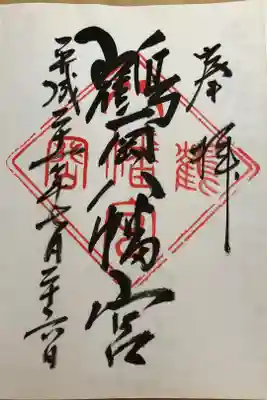 奉拝
鶴岡八幡宮
平成二十年七月二十六日
鶴岡八幡宮